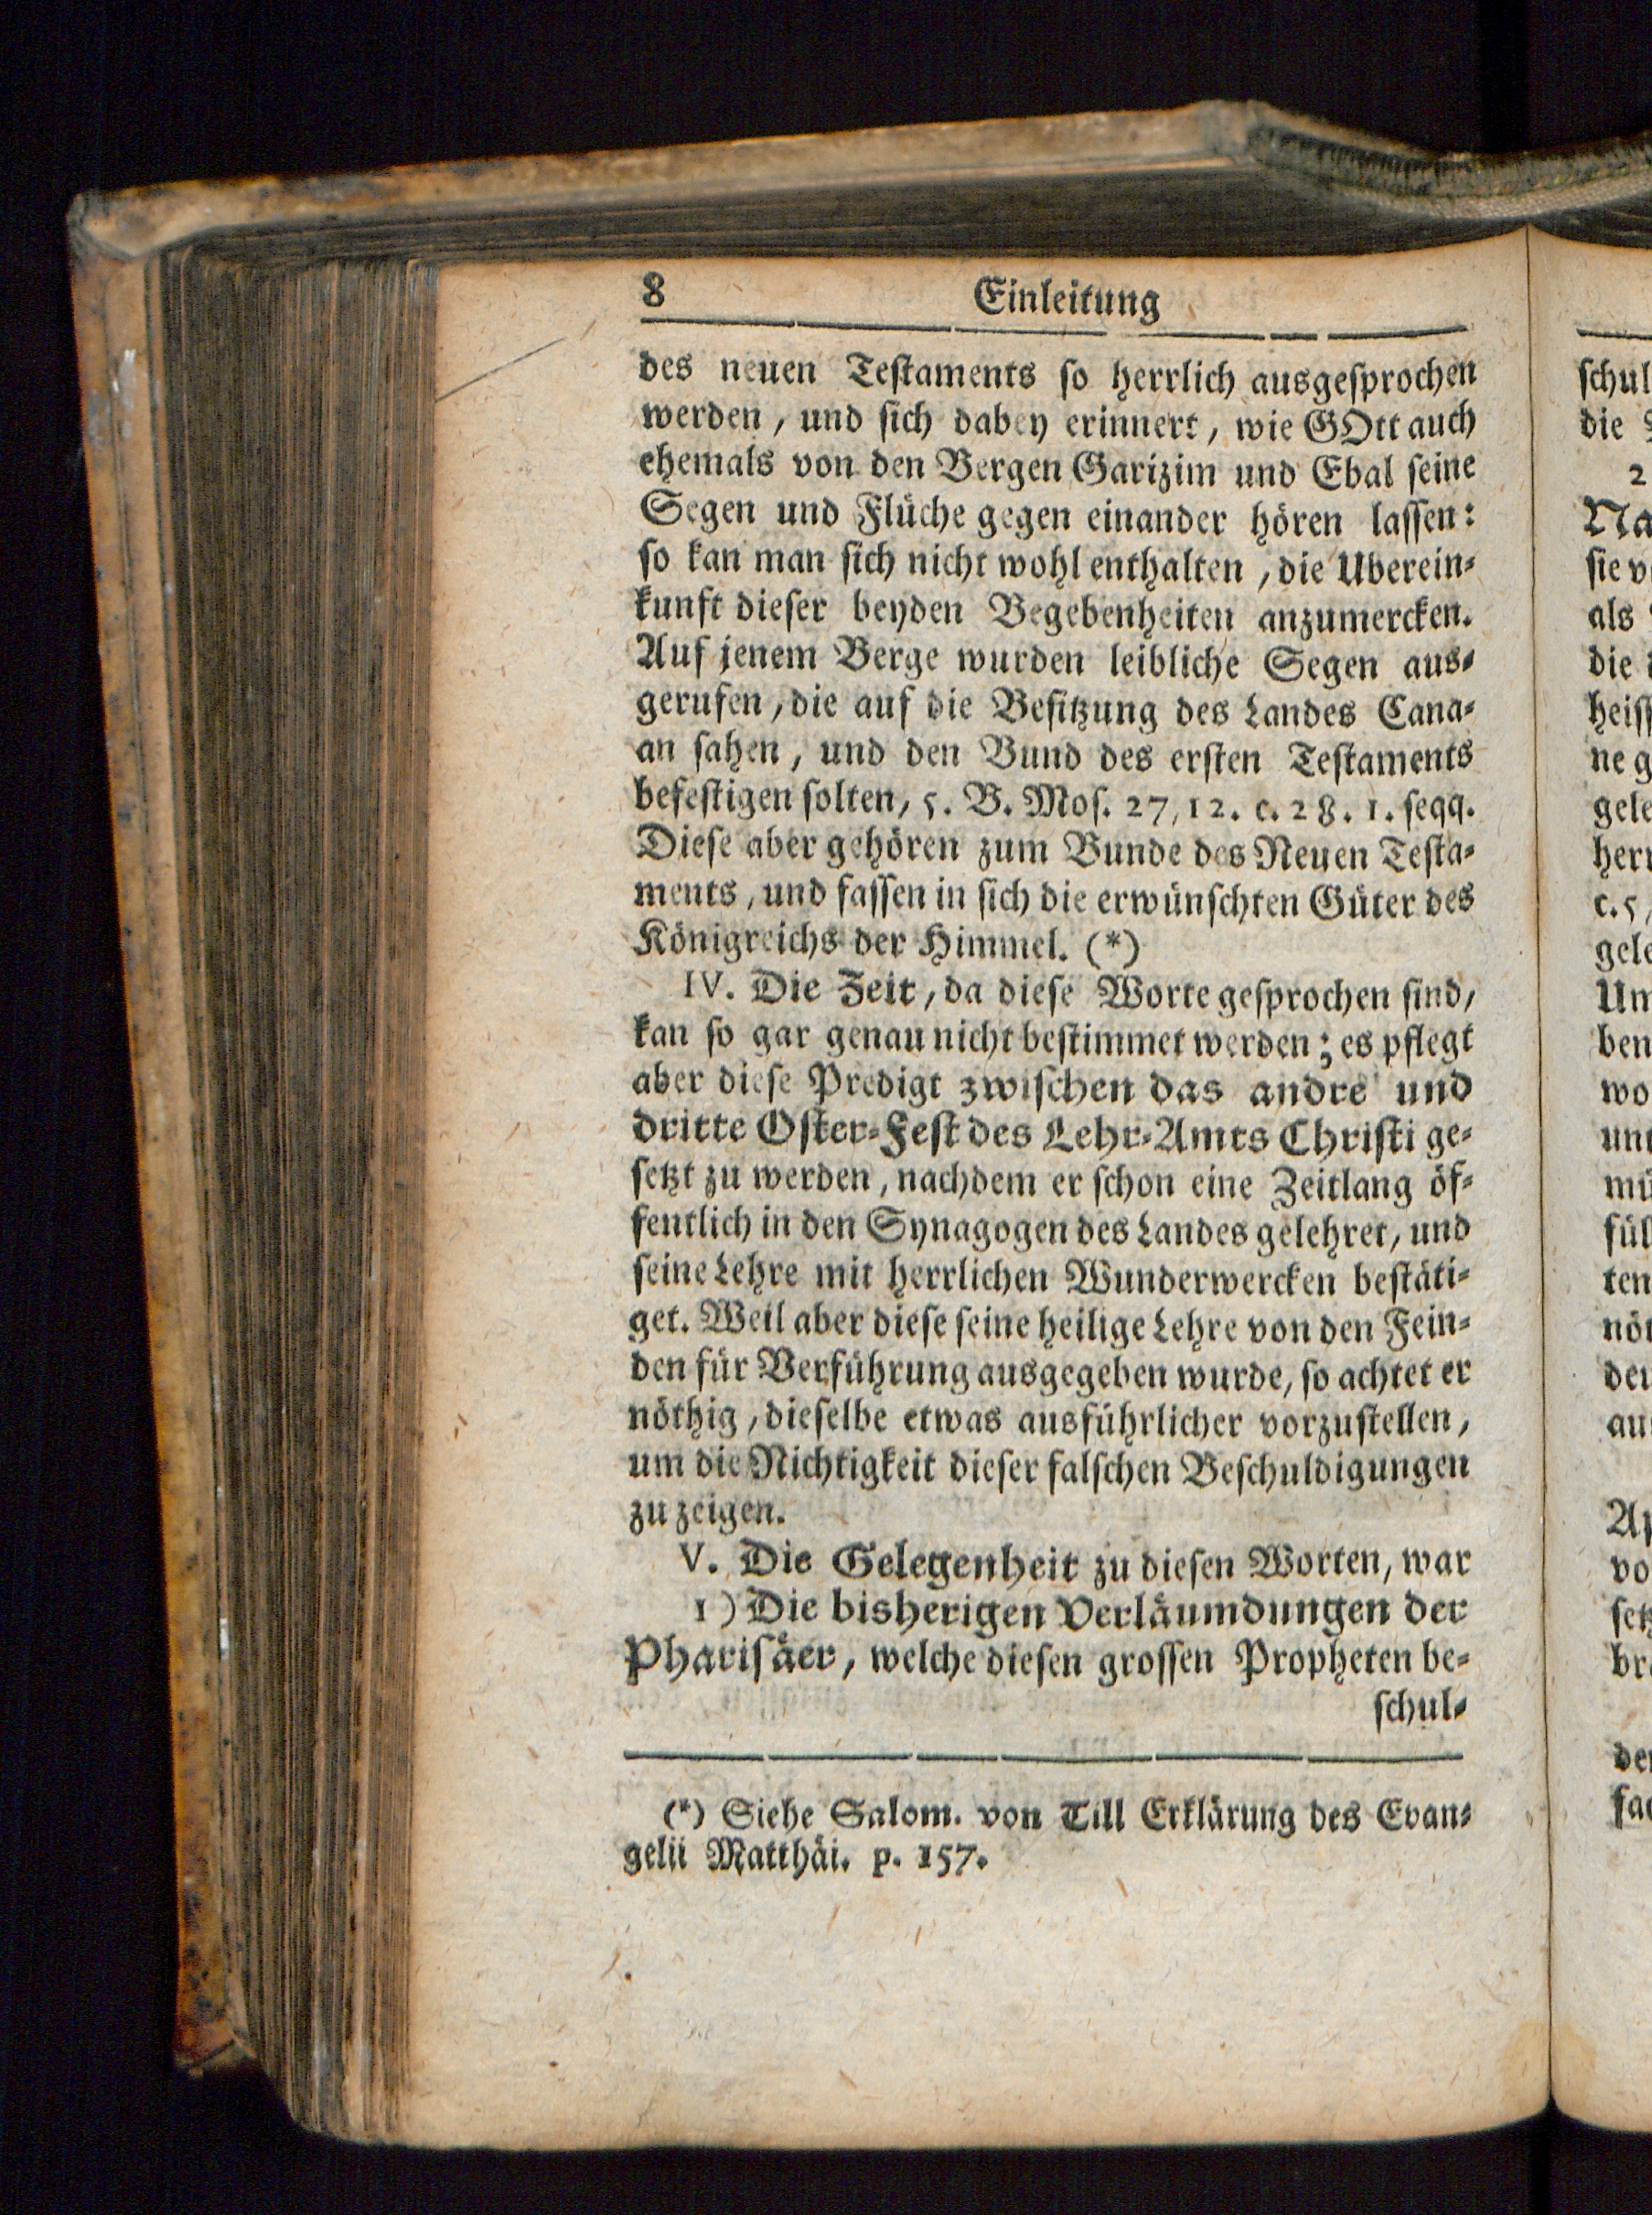 8 Einleitung
des neuen Teſtaments ſo herrlich ausgeſprochen
werden, und ſich dabey erinnert, wie GOtt auch
ehemals von den Bergen Garizim und Ebal ſeine
Segen und Flüche gegen einander hören laſſen:
ſo kan man ſich nicht wohl enthalten, die Uberein⸗
kunft dieſer beyden Begebenheiten anzumercken.
Auf jenem Berge wurden leibliche Segen aus⸗
gerufen, die auf die Beſitzung des Landes Cana⸗
an ſahen, und den Bund des erſten Teſtaments
befeſtigen ſolten, 5. B. Moſ. 27, 12. c. 28. 1. ſeqq.
Dieſe aber gehören zum Bunde des Neuen Teſta⸗
ments, und faſſen in ſich die erwünſchten Güter des
Königreichs der Himmel. (*)
IV. Die Zeit, da dieſe Worte geſprochen ſind,
kan ſo gar genau nicht beſtimmet werden; es pflegt
aber dieſe Predigt zwiſchen das andre und
dritte Oſter⸗Feſt des Lehr⸗Amts Chriſti ge⸗
ſetzt zu werden, nachdem er ſchon eine Zeitlang öf⸗
fentlich in den Synagogen des Landes gelehret, und
ſeine Lehre mit herrlichen Wunderwercken beſtäti⸗
get. Weil aber dieſe ſeine heilige Lehre von den Fein⸗
den für Verführung ausgegeben wurde, ſo achtet er
nöthig, dieſelbe etwas ausführlicher vorzuſtellen,
um die Nichtigkeit dieſer falſchen Beſchuldigungen
zu zeigen.
V. Die Gelegenheit zu dieſen Worten, war
1) Die bisherigen Verläumdungen der
Phariſäer, welche dieſen groſſen Propheten be⸗
ſchul⸗
(*) Siehe Salom. von Till Erklärung des Evan⸗
gelii Matthäi. p. 157.
ſchul
die
2
Na
ſie v
als
die
heiſſ
ne g
gele
her
c. 5,
gele
Um
ben
wo
unt
mü
fül
ten
nöt
den
au
Ap
vo
ſetz
br
de